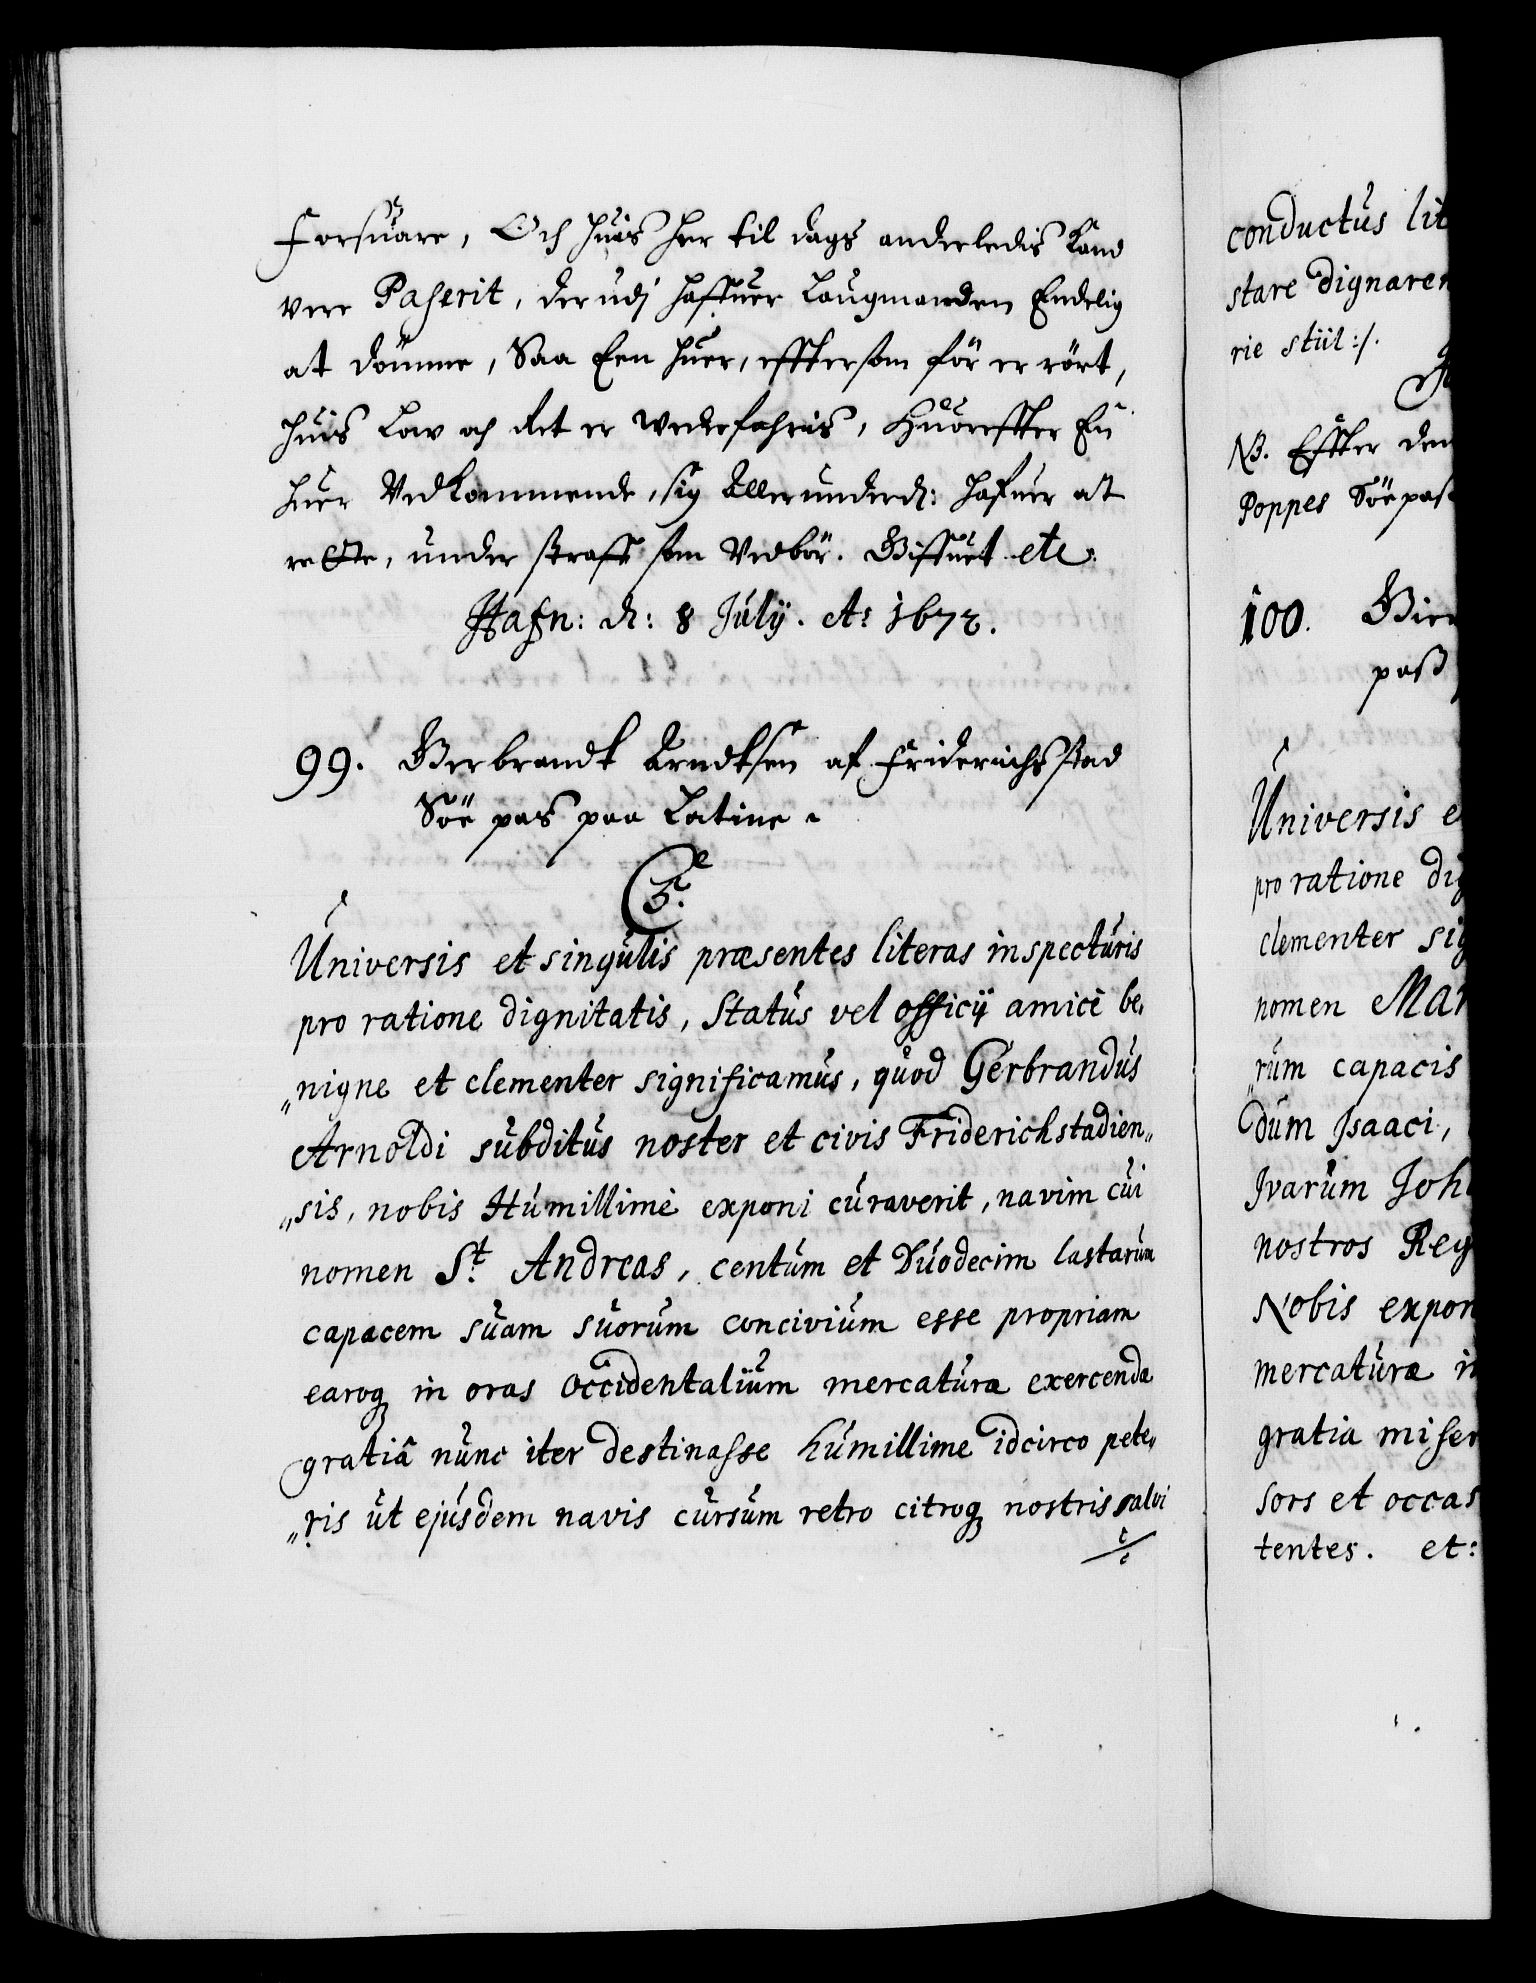 Forsuare, Och huis her til dags anderledis kand
vere Paserit, der udj haffuer Laugmanden Endelig
at dömme, Saa Een huer, effttersom för er rört,
huis Low og Ret er wederfahris, Huoreffter En
huer Vedkommende, sig Allerunderd: hafuer at
rette, under straff som Vedbör. Giffuet etc.
Hafn: d: 8 Julij. Ao 1672.
99. Gerbrandt Arndtsen af Friderichsstad
Söe pas paa Latine.
C5.
Universis et singulis præsentes literas inspecturis
pro ratione dignitatis, Status vel officij amicè be„
„nigne et clementer significamus, quod Gerbrandus
Arnoldi subditus noster et civis Friderichstadien„
„sis, nobis Humillimè exponi curaverit, navim cui
nomen St. Andreas, centum et Duodecim lastarum
capacem suam suorum concivium esse propriam
earoq in oras occidentalium mercaturæ exercendæ
gratiâ nunc iter destinasse humillime idcirco pete„
„ris ut ejusdem navis cursum retro citroq nostris salvi
conductus lit
stare dignaren
rie stiil:/.
NB. Effter den
Poppes Söepas
100. Gier
pass
Universis e
pro ratione dig
clementer sig
nomen Mar
„rum capacis
dum Isaaci,
Ivarum Joh
nostros Reg
Nobis expon
mercaturæ in
gratia miser
sors et occas
tentes. et: